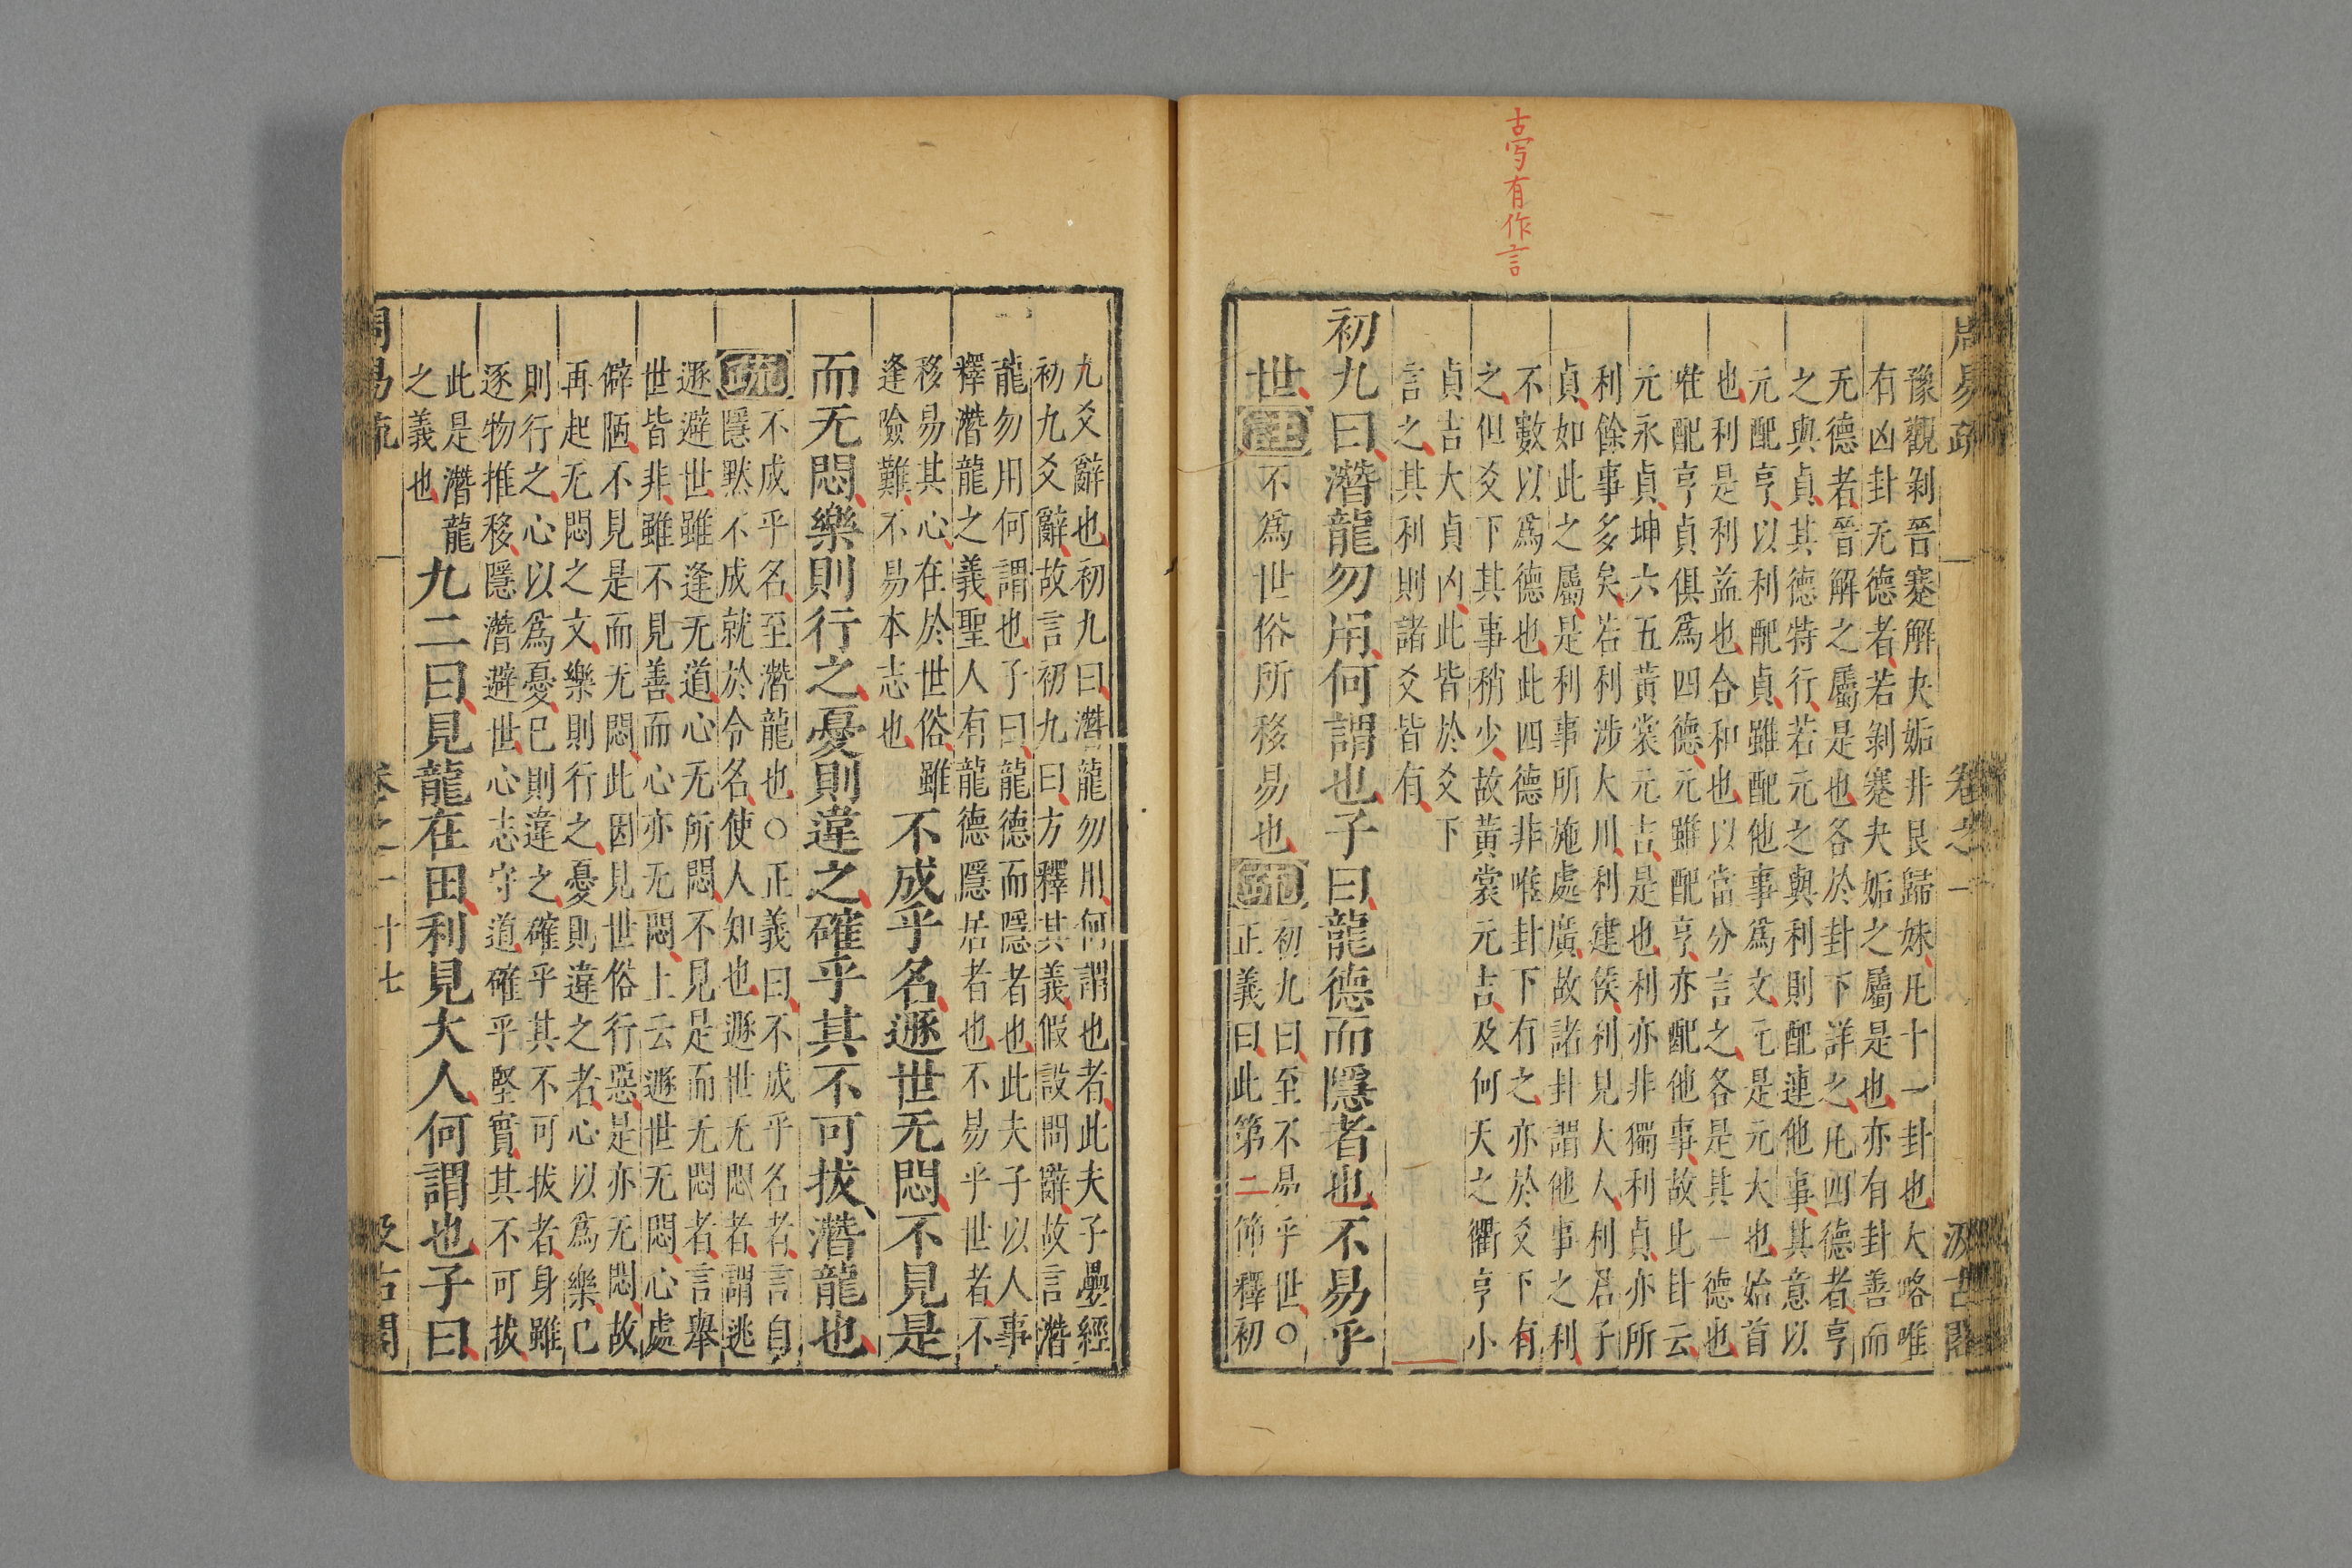 古寫有作言
周易疏 卷之一 汲古閣
豫觀剝晉蹇解夬姤井艮歸妹凡十一卦也大略唯
有凶卦无德者若剝蹇夬姤之屬是也亦有卦善而
无德者晉解之屬是也各於卦下詳之凡四德者亨
之與貞其德特行若元之與利則配連他事其意以
元配亨以利配貞雖配他事爲文元是元大也始首
也利是利益也合和也以當分言之各是其一德也
唯配亨貞俱爲四德元雖配亨亦配他事故比卦云
元永貞坤六五黃裳元元吉是也利亦非獨利貞亦所
利餘事多矣若利涉大川利建侯利見大人利君子
貞如此之屬是利事所施處廣故諸卦謂他事之利
不數以爲德也此四德非唯卦下有之亦於爻下有
之但爻下其事稍少故黃裳元吉及何天之衢亨小
貞吉大貞凶此皆於爻下
言之其利則諸爻皆有
初九曰潛龍勿用何謂也子曰龍德而隱者也不易乎
世
注
不爲世俗所移易也
疏
初九曰至不易乎世○
正義曰此第二節釋初
九爻辭也初九曰潛龍勿用何謂也者此夫子疊經
初九爻辭故言初九曰方釋其義假設問辭故言潛
龍勿用何謂也子曰龍德而隱者也此夫子以人事
釋潛龍之義聖人有龍德隱居者也不易乎世者不
移易其心在於世俗雖
逢險難不易本志也
不成乎名遯世无悶不見是
而无悶樂則行之憂則違之確乎其不可拔潛龍也
疏
不成乎名至潛龍也○正義曰不成乎名者言自
隱默不成就於令名使人知也遯世无悶者謂逃
遯避世雖逢无道心无所悶不見是而无悶者言舉
世皆非雖不見善而心亦无悶上云遯世无悶心處
僻陋不見是而无悶此因見世俗行惡是亦无悶故
再起无悶之文樂則行之憂則違之者心以爲樂己
則行之心以爲憂己則違之確乎其不可拔者身雖
逐物推移隱潛避世心志守道確乎堅實其不可拔
此是潛龍
之義也
九二曰見龍在田利見大人何謂也子曰
周易疏 卷之一 十七 汲古閣